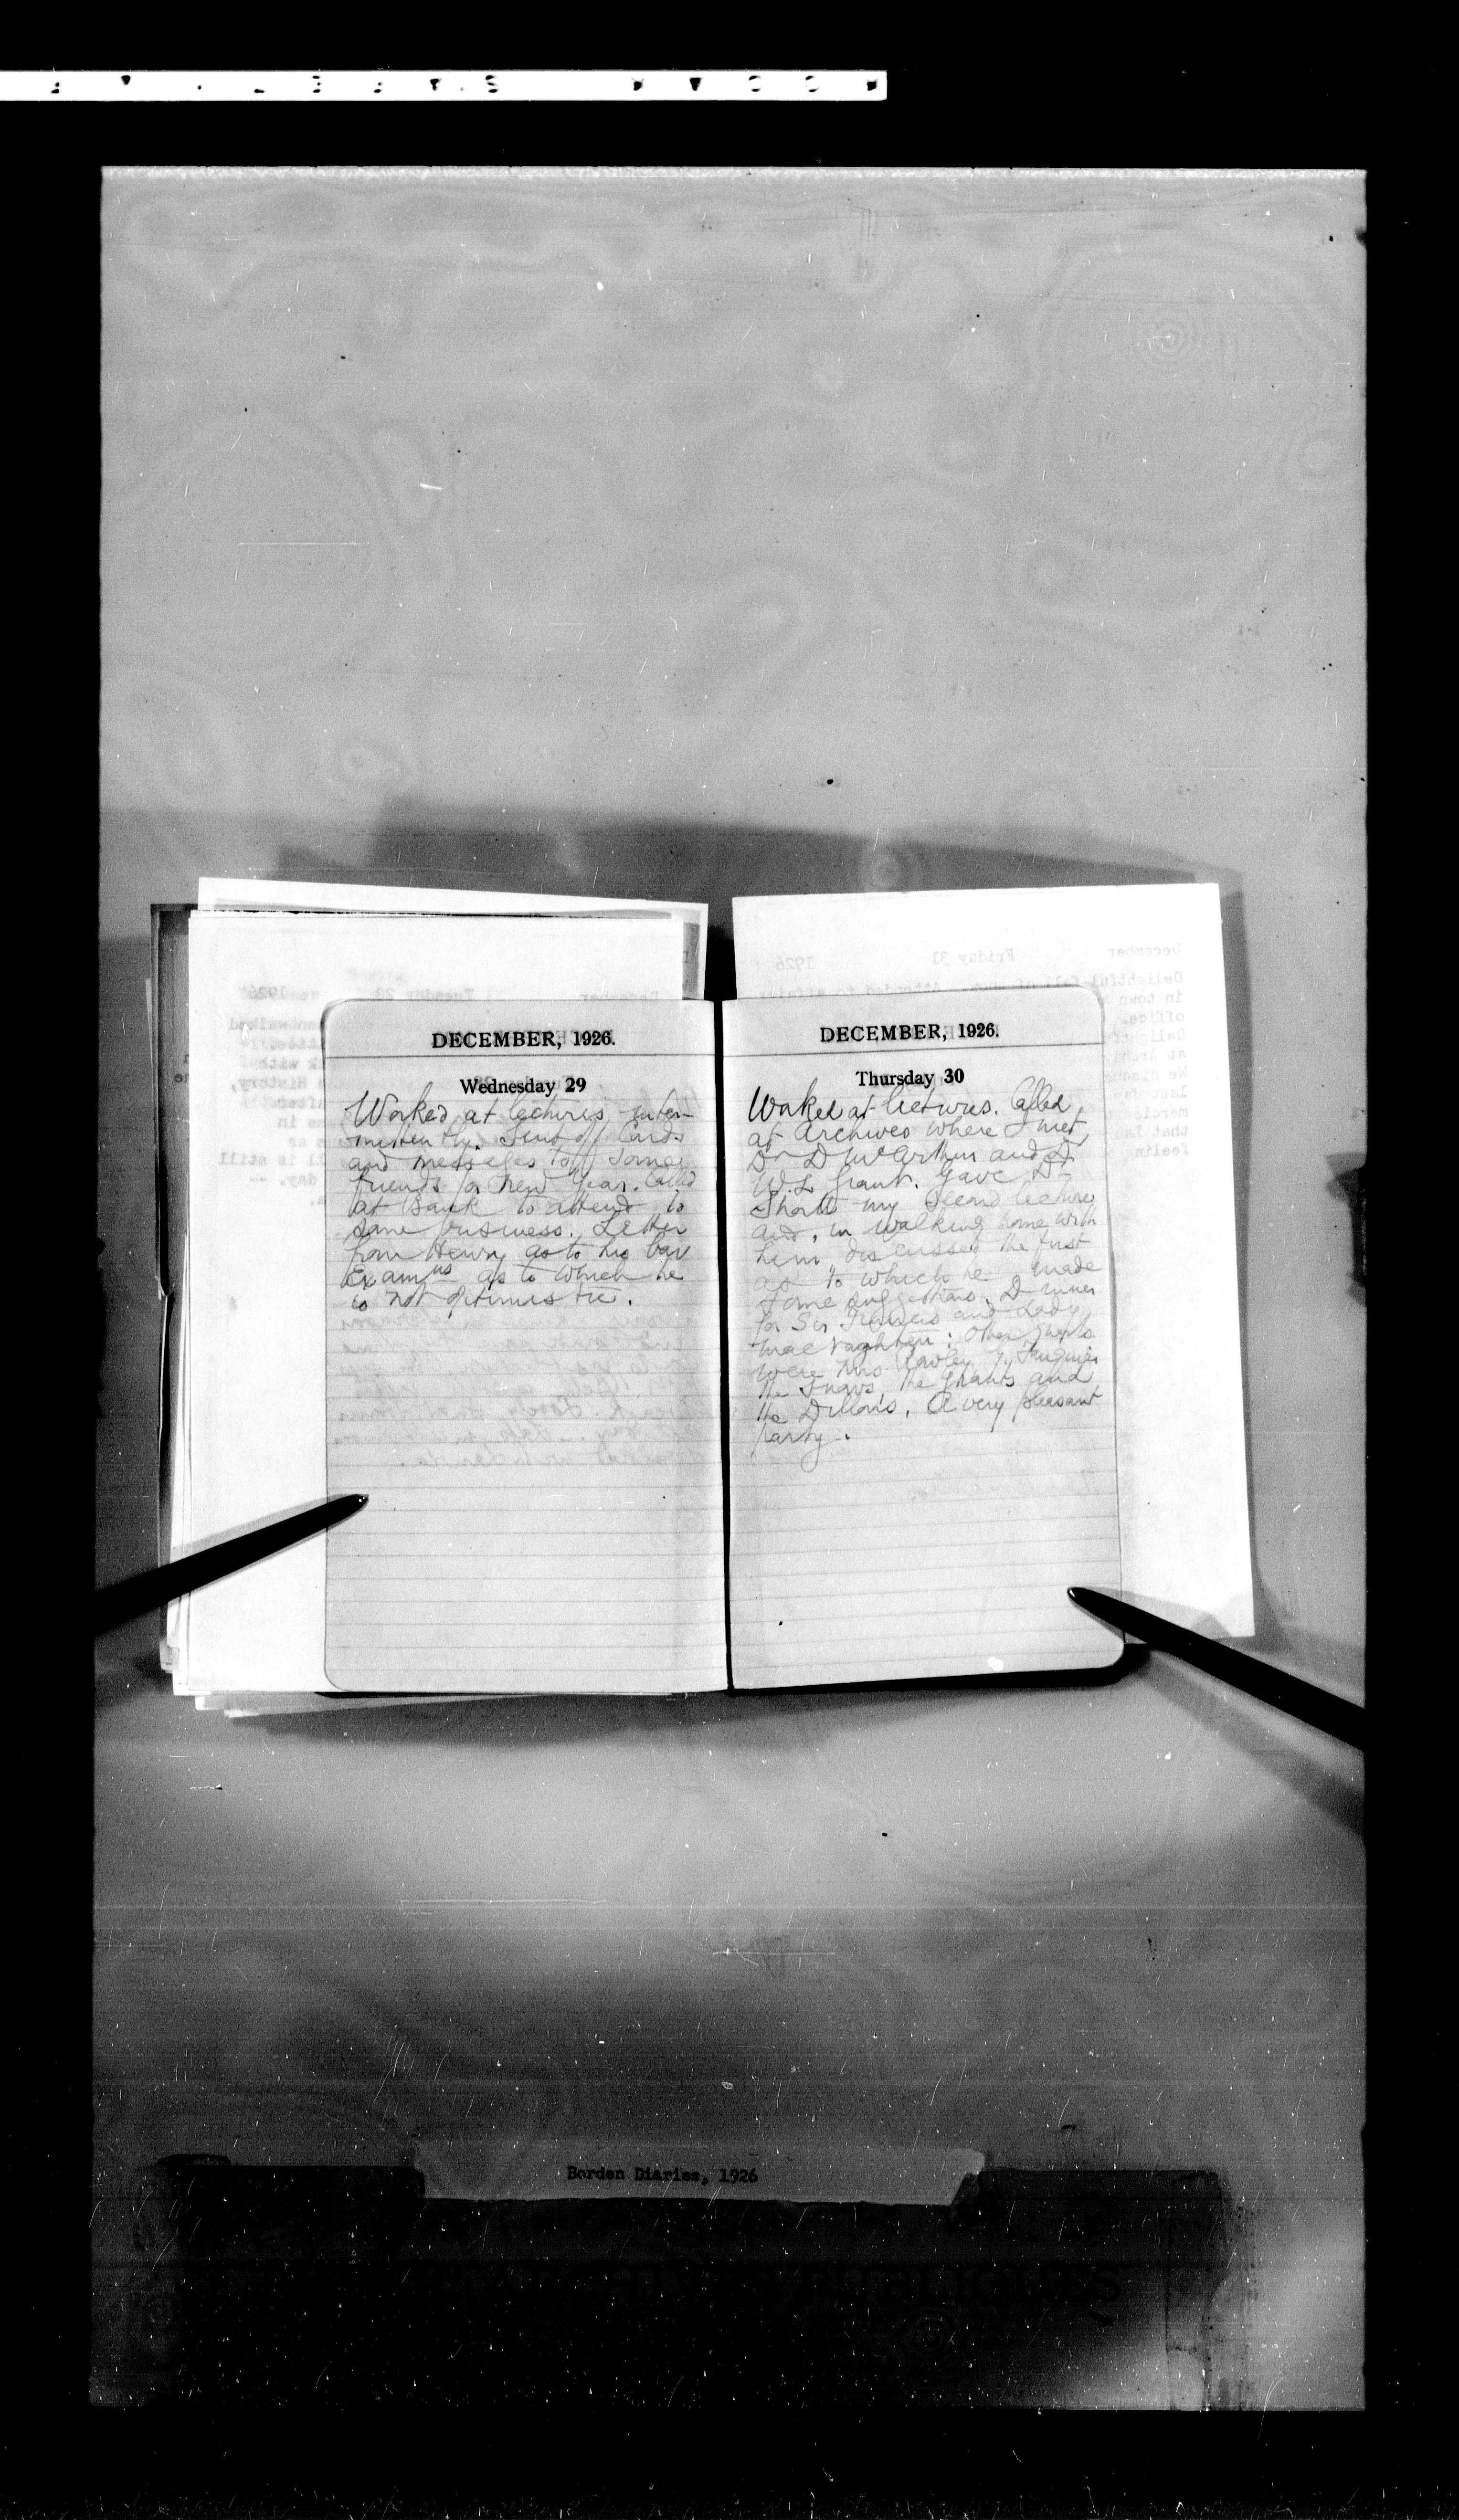 DECEMBER, 1926.
Wednesday 29
Worked at lectures inter-
mittently. Sent off Cards
and messages to some
friends for New Year. Called
at Bank to attend to
some business. Letter
from Henry as to his bar
Examns as to which he
is not optimistic.
DECEMBER, 1926.
Thursday 30
Worked at lectures. Called
at Archives where I met
Dr D McArthur and Dr
W.L. Grant. Gave Dr
Shortt my second lecture
and, in walking home with
him discussed the first
as to which he made
some suggestions. Dinner
for Sir Francis and Lady
MacNaghten; Other guests
were Mrs
the Snows, the Grants and
the Dillons. A very pleasant
party.
Borden Diaries, 1926